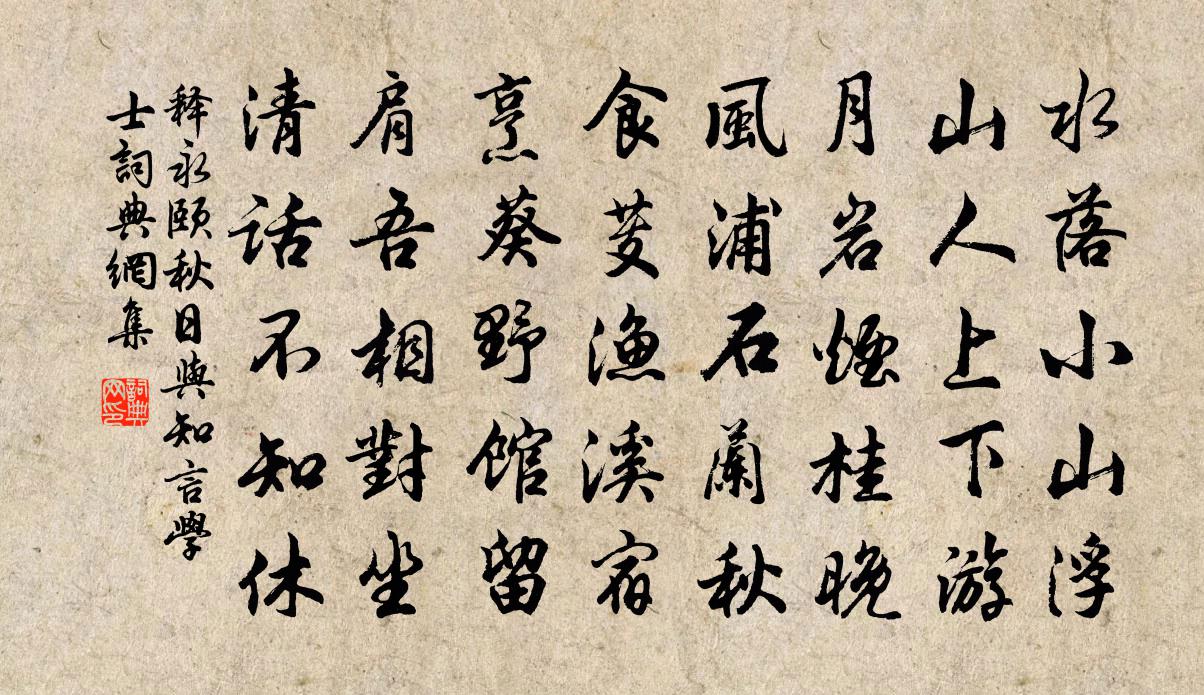 水落小山浮
山人上下游
月岩煙桂晚
風浦石蘭秋
食芰漁溪宿
烹葵野館留
肩吾相對坐
清話不知休
释永頤秋日與知言學
士詞典網集
詞典
网印